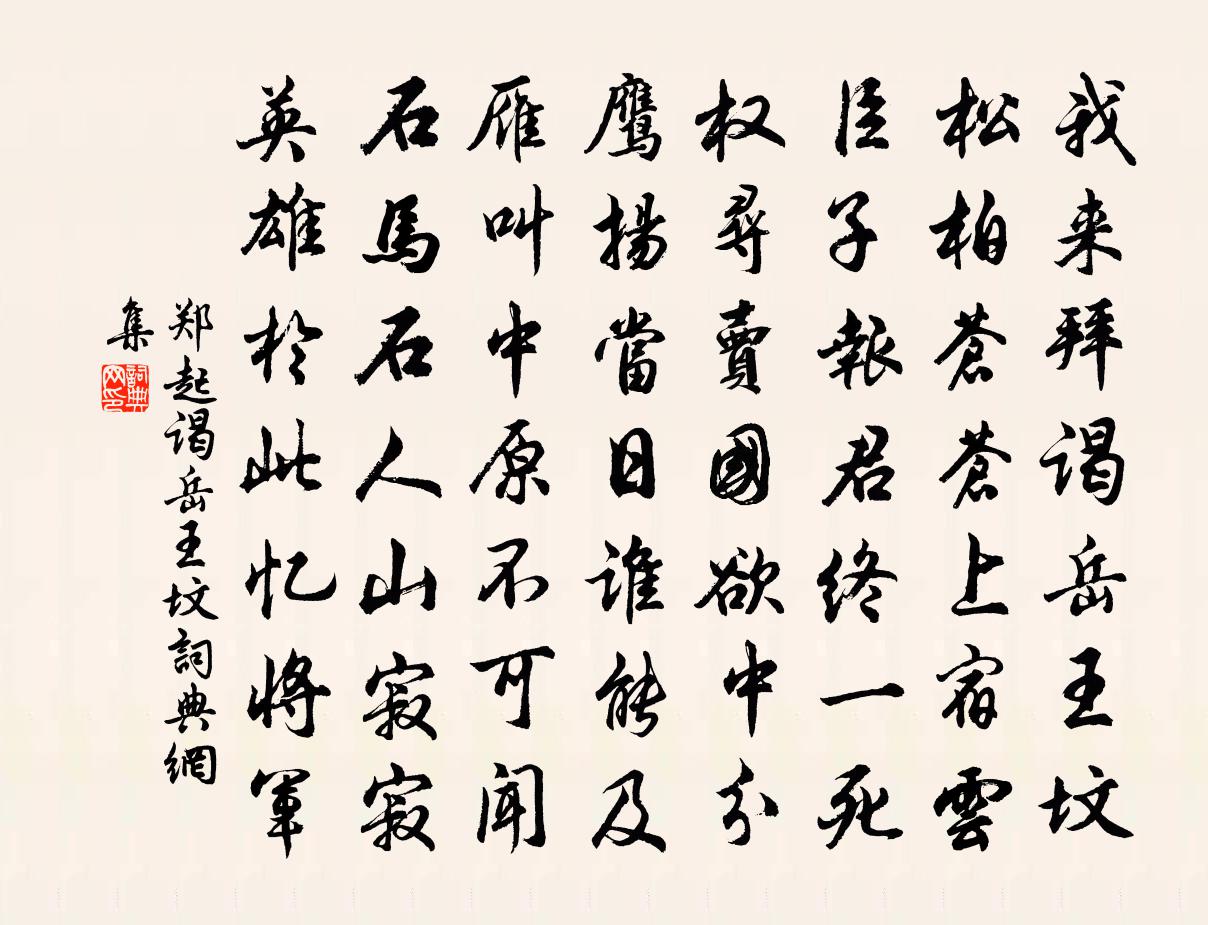 我来拜谒岳王坟
松柏苍苍上宿雲
臣子報君终一死
权尋賣國欲中分
鹰揚當日谁能及
雁叫中原不可闻
石馬石人山寂寂
英雄於此忆將军
郑起谒岳王坟詞典網
集
詞典网印